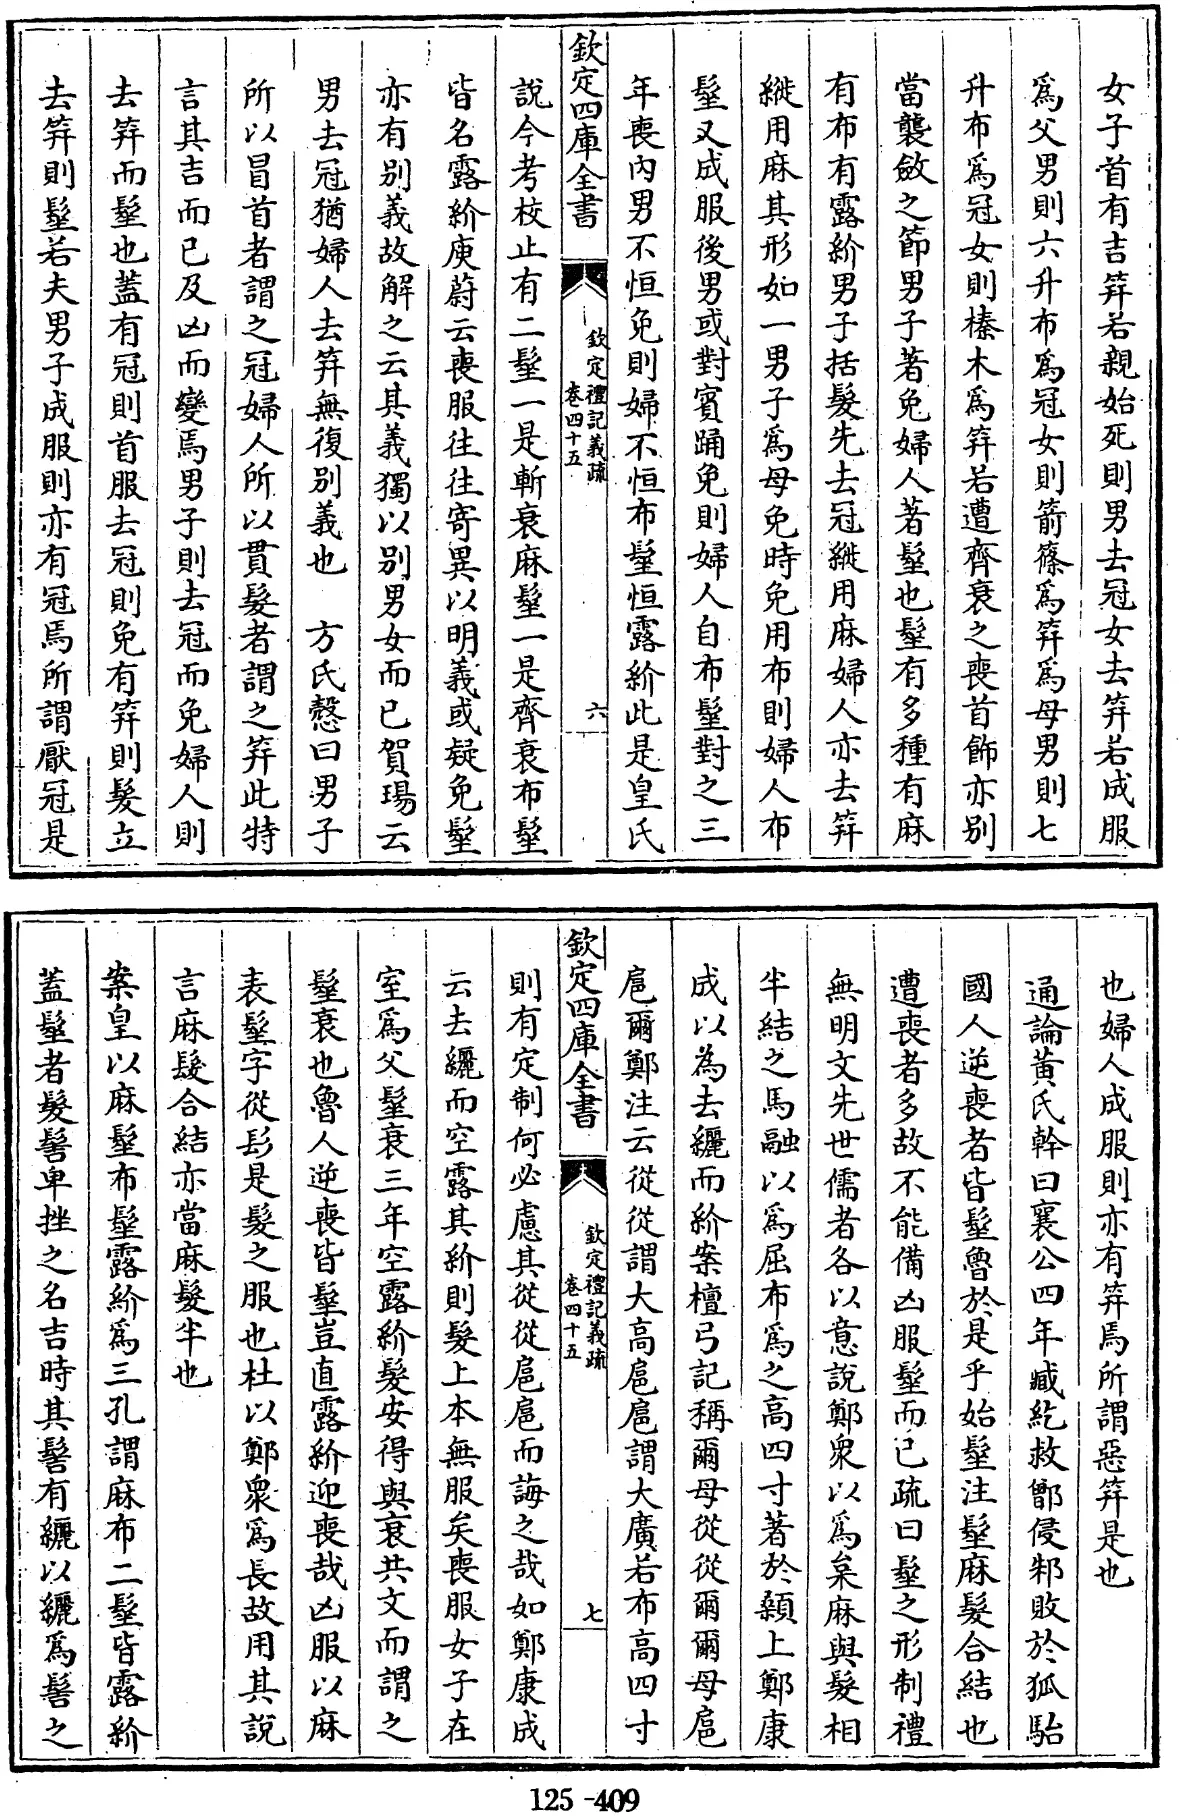 女子首有吉笄若親始死則男去冠女去笄若成服
爲父男則六升布爲冠女則箭篠爲笄爲母男則七
升布爲冠女則榛木爲笄若遭齊衰之喪首飾亦別
當襲斂之節男子著免婦人著髽也髽有多種有麻
有布有露紒男子括髮先去冠縰用麻婦人亦去笄
縰用麻其形如一男子爲母免時免用布則婦人布
髽又成服後男或對賓踊免則婦人自布髽對之三
年喪內男不恒免則婦不恒布髽恒露紒此是皇氏
欽定四庫全書
欽定禮記義疏
卷四十五
六
說今考校止有二髽一是斬衰麻髽一是齊衰布髽
皆名露紒庾蔚云喪服往往寄異以明義或疑免髽
亦有別義故解之云其義獨以別男女而已賀瑒云
男去冠猶婦人去笄無復別義也 方氏慤曰男子
所以冒首者謂之冠婦人所以貫髮者謂之笄此特
言其吉而已及凶而變焉男子則去冠而免婦人則
去笄而髽也蓋有冠則首服去冠則免有笄則髮立
去笄則髽若夫男子成服則亦有冠焉所謂厭冠是
也婦人成服則亦有笄焉所謂惡笄是也
通論黃氏幹曰襄公四年臧紇救鄫侵邾敗於狐駘
國人逆喪者皆髽魯於是乎始髽注髽麻髮合結也
遭喪者多故不能備凶服髽而已疏曰髽之形制禮
無明文先世儒者各以意說鄭衆以爲枲麻與髮相
半結之馬融以爲屈布爲之高四寸著於顙上鄭康
成以為去纚而紒案檀弓記稱爾母從從爾爾母扈
扈爾鄭注云從從謂大高扈扈謂大廣若布高四寸
欽定四庫全書
欽定禮記義疏
卷四十五
七
則有定制何必慮其從從扈扈而誨之哉如鄭康成
云去纚而空露其紒則髮上本無服矣喪服女子在
室爲父髽衰三年空露紒髮安得與衰共文而謂之
髽衰也魯人逆喪皆髽豈直露紒迎喪哉凶服以麻
表髽字從髟是髮之服也杜以鄭衆爲長故用其說
言麻髮合結亦當麻髮半也
案皇以麻髽布髽露紒爲三孔謂麻布二髽皆露紒
蓋髽者髮髻卑挫之名吉時其髻有纚以纚爲髻之
125-409